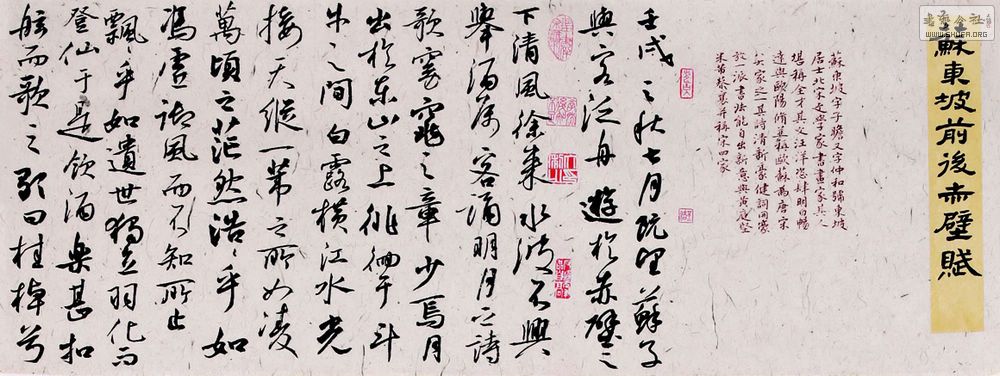 书艺公社
WWW.SHUFA.ORG
蘇東坡前後赤壁賦
蘇東坡字子瞻又字仲和號東坡
居士北宋文學家書畫家其人
堪稱全才其文汪洋恣肆明白暢
達與歐陽脩並稱歐蘇為唐宋
八大家之一其詩清新豪健詞開豪
放一派書法能自出新意與黃庭堅
米芾蔡襄並稱宋四家
壬戌之秋七月既望蘇子
與客泛舟遊於赤壁之
下清風徐來水波不興
舉酒属客誦明月之詩
歌窈窕之章少焉月
出於東山之上徘徊于斗
牛之間白露橫江水光
接天縱一葦之所如凌
萬頃之茫然浩浩乎如
馮虛御風而不知所止
飄飄乎如遺世獨立羽化而
登仙于是飲酒樂甚扣
舷而歌之歌曰桂棹兮